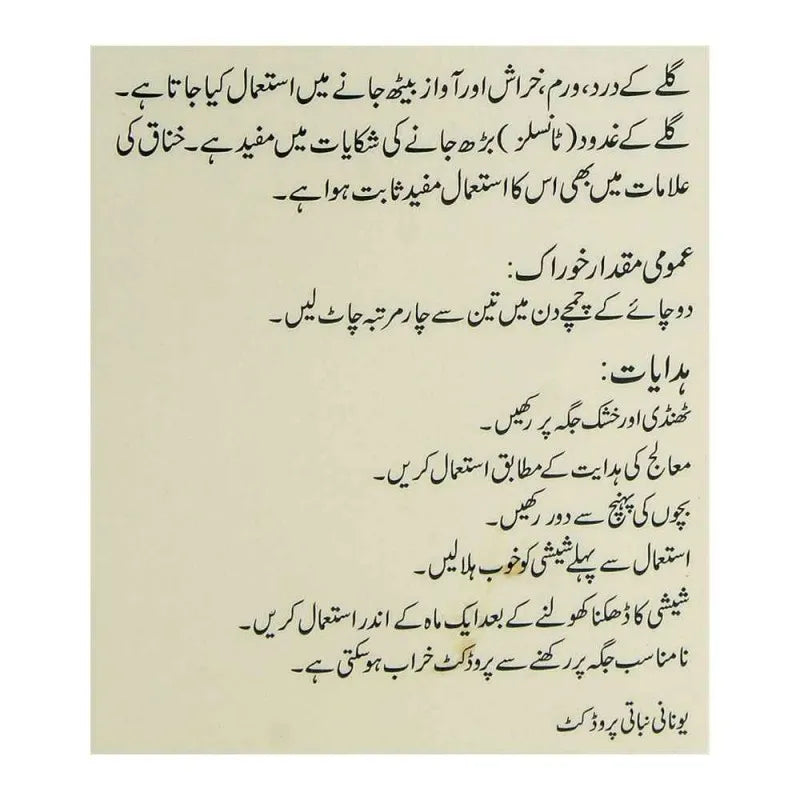 گلے کے درد، ورم، خراش اور آواز بیٹھ جانے میں استعمال کیا جاتا ہے۔
گلے کے غدود (ٹانسلز) بڑھ جانے کی شکایات میں مفید ہے۔ خناق کی
علامات میں بھی اس کا استعمال مفید ثابت ہوا ہے۔
عمومی مقدار خوراک:
دو چائے کے چمچے دن میں تین سے چار مرتبہ چاٹ لیں۔
ہدایات:
ٹھنڈی اور خشک جگہ پر رکھیں۔
معالج کی ہدایت کے مطابق استعمال کریں۔
بچوں کی پہنچ سے دور رکھیں۔
استعمال سے پہلے شیشی کو خوب ہلالیں۔
شیشی کا ڈھکنا کھولنے کے بعد ایک ماہ کے اندر استعمال کریں۔
نامناسب جگہ پر رکھنے سے پروڈکٹ خراب ہوسکتی ہے۔
یونانی نباتی پروڈکٹ